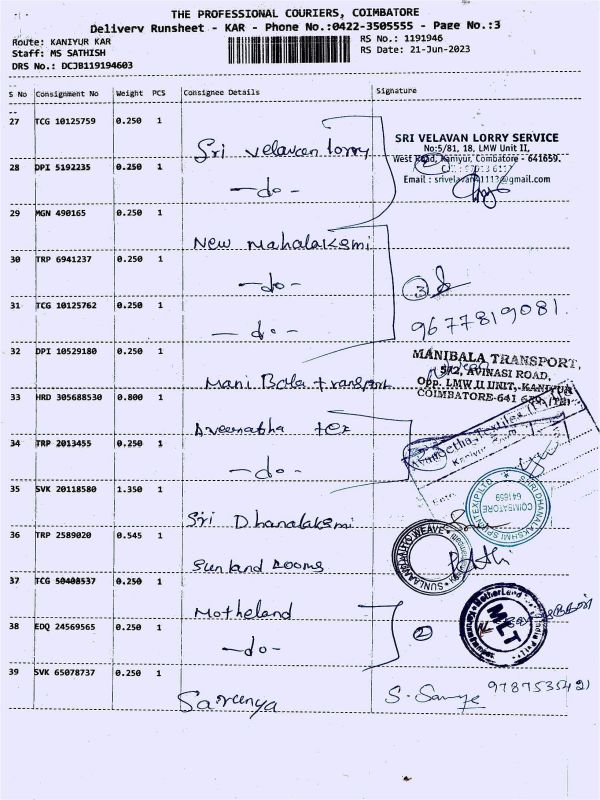 THE PROFESSIONAL COURIERS, COIMBATORE
Delivery Runsheet - KAR - Phone No.:0422-3505555 - Page No.:3
Route: KANIYUR KAR
RS No.: 1191946
Staff: MS SATHISH
RS Date: 21-Jun-2023
DRS No.: DCJB119194603
S No Consignment No Weight PCS Consignee Details Signature
27 TCG 10125759 0.250 1
Sri velavan lorry
SRI VELAVAN LORRY SERVICE
No:5/81, 18, LMW Unit II,
West Road, Kaniyur, Coimbatore - 641659.
Email : srivelavan41113@gmail.com
28 DPI 5192235 0.250 1
-do-
29 MGN 490165 0.250 1
New Mahalaksmi
30 TRP 6941237 0.250 1
-do-
3
31 TCG 10125762 0.250 1
-do-
9677819081
32 DPI 10529180 0.250 1
Mani Bala transport
MANIBALA TRANSPORT,
572, AVINASI ROAD,
Opp. LMW II UNIT, KANIYUR
COIMBATORE-641 659
33 HRD 305688530 0.800 1
Aveenatha tex
34 TRP 2013455 0.250 1
-do-
35 SVK 20118580 1.350 1
Sri Dhanalaksmi
SRI DHANALAKSHMI SPINTEX (P) LTD
COIMBATORE
641659
36 TRP 2589020 0.545 1
Sunland Looms
37 TCG 50408537 0.250 1
Motheland
38 EDQ 24569565 0.250 1
-do-
2
MLT
39 SVK 65078737 0.250 1
Sareenya